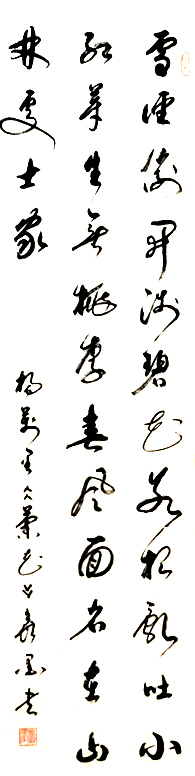 雪徑偷開淺碧花冰根亂吐小
紅芽生無桃李春風面名在山
林處士家
楊萬里蘭花